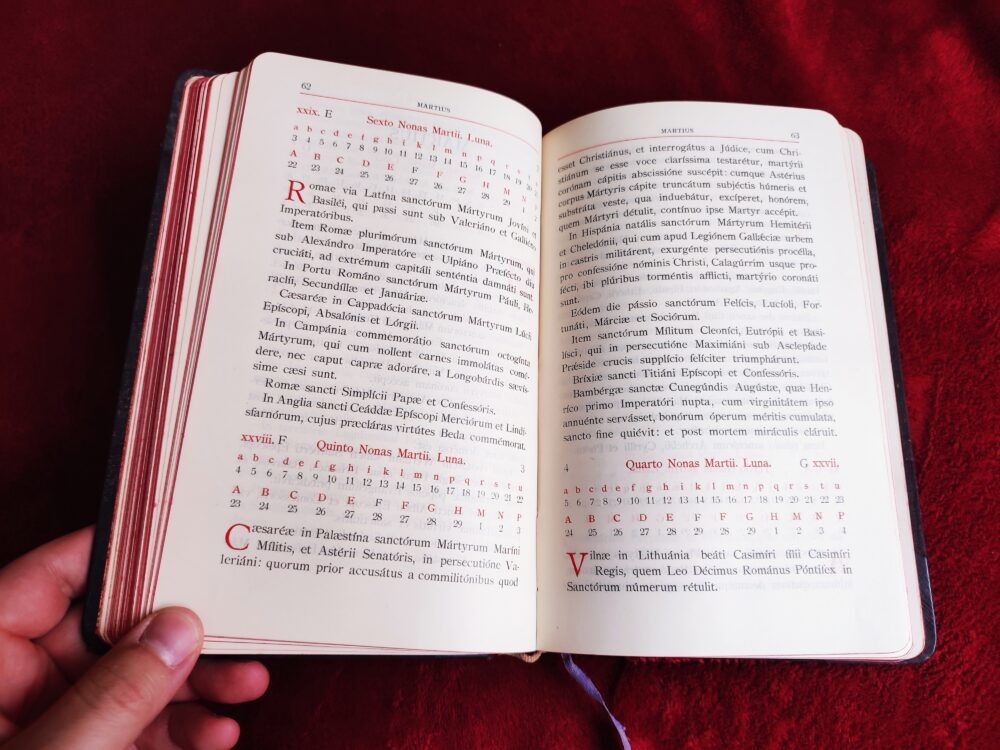 62
MARTIUS
xxix. E Sexto Nonas Martii. Luna.
a b c d e f g h i k l m n p q r s
3 4 5 6 7 8 9 10 11 12 13 14 15 16 17 18 19 20
A B C D E F F G H M N
22 23 24 25 26 27 26 27 28 29 1
Romae via Latína sanctórum Mártyrum Jovíni et
Basiléi, qui passi sunt sub Valeriáno et Galliéno
Imperatóribus.
Item Romæ plurimórum sanctórum Mártyrum, qui
sub Alexándro Imperatóre et Ulpiáno Præfécto diu
cruciáti, ad extrémum capitáli senténtia damnáti sunt.
In Portu Románo sanctórum Mártyrum Páuli, He-
raclíi, Secundíllæ et Januáriæ.
Cæsaréæ in Cappadócia sanctórum Mártyrum Lúcii
Epíscopi, Absalónis et Lórgii.
In Campánia commemorátio sanctórum octogínta
Mártyrum, qui cum nollent carnes immolátas comé-
dere, nec caput capræ adoráre, a Longobárdis sævís-
sime cæsi sunt.
Romæ sancti Simplícii Papæ et Confessóris.
In Anglia sancti Ceáddæ Epíscopi Merciórum et Lindi-
sfarnórum, cujus præcláras virtútes Beda commémorat.
xxviii. F Quinto Nonas Martii. Luna. 3
a b c d e f g h i k l m n p q r s t u
4 5 6 7 8 9 10 11 12 13 14 15 16 17 18 19 20 21 22
A B C D E F F G H M N P
23 24 25 26 27 28 27 28 29 1 2 3
Cæsaréæ in Palæstína sanctórum Mártyrum Maríni
Mílitis, et Astérii Senatóris, in persecutióne Va-
leriáni: quorum prior accusátus a commilitónibus quod
MARTIUS
63
esset Christiánus, et interrogátus a Júdice, cum Chri-
stiánum se esse voce claríssima testarétur, martýrii
corónam cápitis abscissióne suscépit: cumque Astérius
corpus Mártyris cápite truncátum subjéctis húmeris et
substráta veste, qua induebátur, excíperet, honórem,
quem Mártyri détulit, contínuo ipse Martyr accépit.
In Hispánia natális sanctórum Mártyrum Hemitérii
et Cheledónii, qui cum apud Legiónem Gallǽciæ urbem
in castris militárent, exurgénte persecutiónis procélla,
pro confessióne nóminis Christi, Calagúrrim usque pro-
fécti, ibi plúribus torméntis afflícti, martýrio coronáti
sunt.
Eódem die pássio sanctórum Felícis, Lucíoli, For-
tunáti, Márciæ et Sociórum.
Item sanctórum Mílitum Cleoníci, Eutrópii et Basi-
lísci, qui in persecutióne Maximiáni sub Asclepíade
Prǽside crucis supplício felíciter triumphárunt.
Bríxiæ sancti Titiáni Epíscopi et Confessóris.
Bambérgæ sanctæ Cunegúndis Augústæ, quæ Hen-
ríco primo Imperatóri nupta, cum virginitátem ipso
annuénte servásset, bonórum óperum méritis cumuláta,
sancto fine quiévit: et post mortem miráculis cláruit.
4 Quarto Nonas Martii. Luna. G xxvii.
a b c d e f g h i k l m n p q r s t u
5 6 7 8 9 10 11 12 13 14 15 16 17 18 19 20 21 22 23
A B C D E F F G H M N P
24 25 26 27 28 29 28 29 1 2 3 4
Vilnæ in Lithuánia beáti Casimíri fílii Casimíri
Regis, quem Leo Décimus Románus Póntifex in
Sanctórum númerum rétulit.